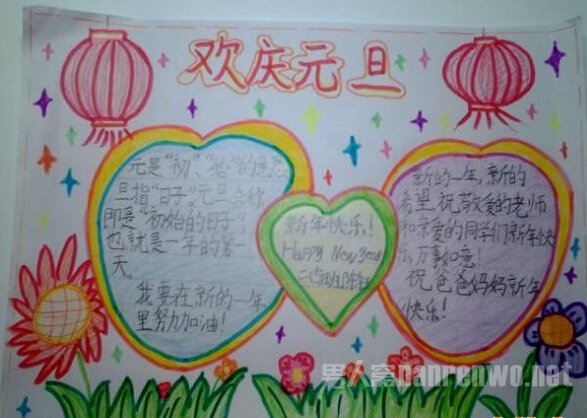 欢庆元旦
元是"初"、"始"的意思
旦指"日子"。元旦合称
即是"初始的日子"
也就是一年的第一
天。
我要在新的一年
里努力加油!
新年快乐!
Happy New Year
新的一年,新的
希望,祝敬爱的老师
和亲爱的同学们新年快
乐,万事如意!
祝爸爸妈妈新年
快乐!
男人窝nanrenwo.net